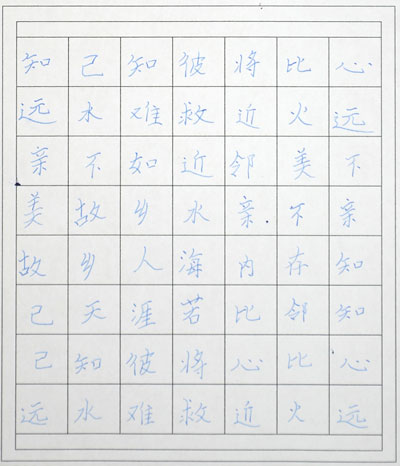 知己知彼将比心
远水难救近火远
亲不如近邻美不
美故乡水亲不亲
故乡人海内存知
己天涯若比邻知
己知彼将心比心
远水难救近火远